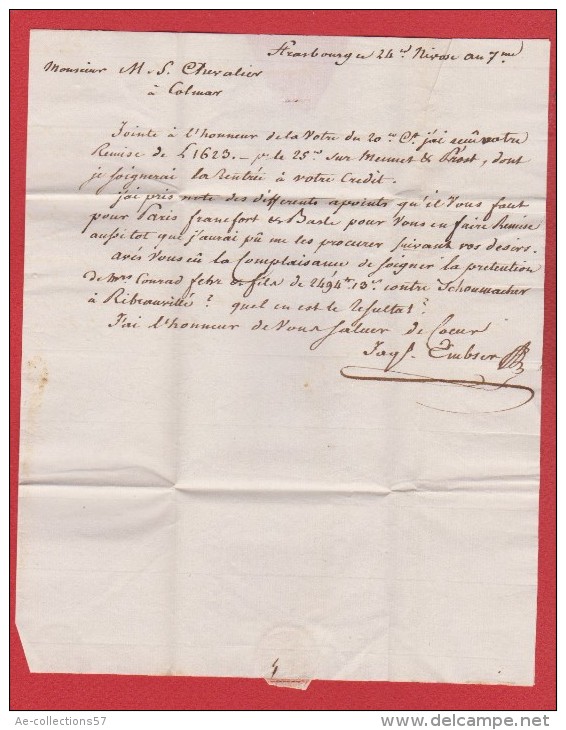 Strasbourg le 24 Nivose an 7me
Monsieur M. S. Chevalier
à Colmar
Jointe à l'honneur de la Votre du 20 Ct j'ai recû votre
Remise de £ 1623.— le 25 sur Meunet & Prost, dont
je soignerai la Rentrée à votre Credit.
j'ai pris note des differents apoints qu'il Vous faut
pour Paris francfort & Basle pour Vous en faire Remise
aussitot que j'aurai pû me les procurer suivant vos desirs.
avés Vous eû la Complaisance de soigner la pretention
de Mrs Conrad fehr & fils de 2494 13 contre Schoumacher
à Ribeauvillé? quel en est le Resultat?
J'ai l'honneur de Vous saluer de Coeur
Jaq. Embser
4
Ae-collections57
www.delcampe.net